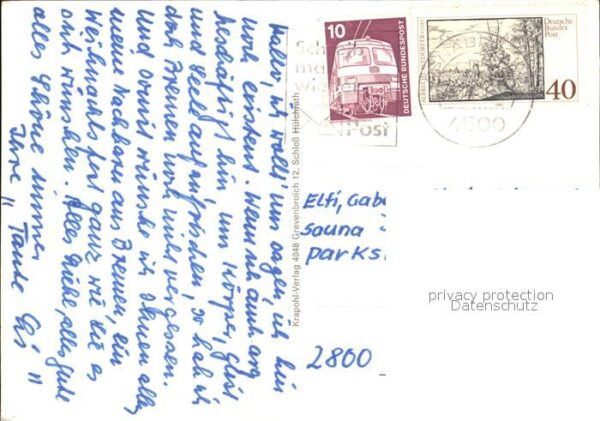 Hallo, ich wollt' nur sagen, ich bin
noch existent. Wenn ich auch arg
beschäftigt bin, um Körper, Geist
und Seele aufzufrischen, so hab ich
doch Bremen noch nicht vergessen.
Und somit wünsche ich Ihnen allen,
meine Nachbarn aus Bremen, ein
Weihnachtsfest ganz wie Sie es
sich wünschen. Alles Liebe, alles Gute
alles Schöne immer
Ihre
" Tante Lis "
Krapohl-Verlag 4048 Grevenbroich 12, Schloß Hülchrath
10
DEUTSCHE BUNDESPOST
Deutsche
Bundes
Post
40
4800
Post
Elfi, Gab
Sauna
parks
2800
privacy protection
Datenschutz